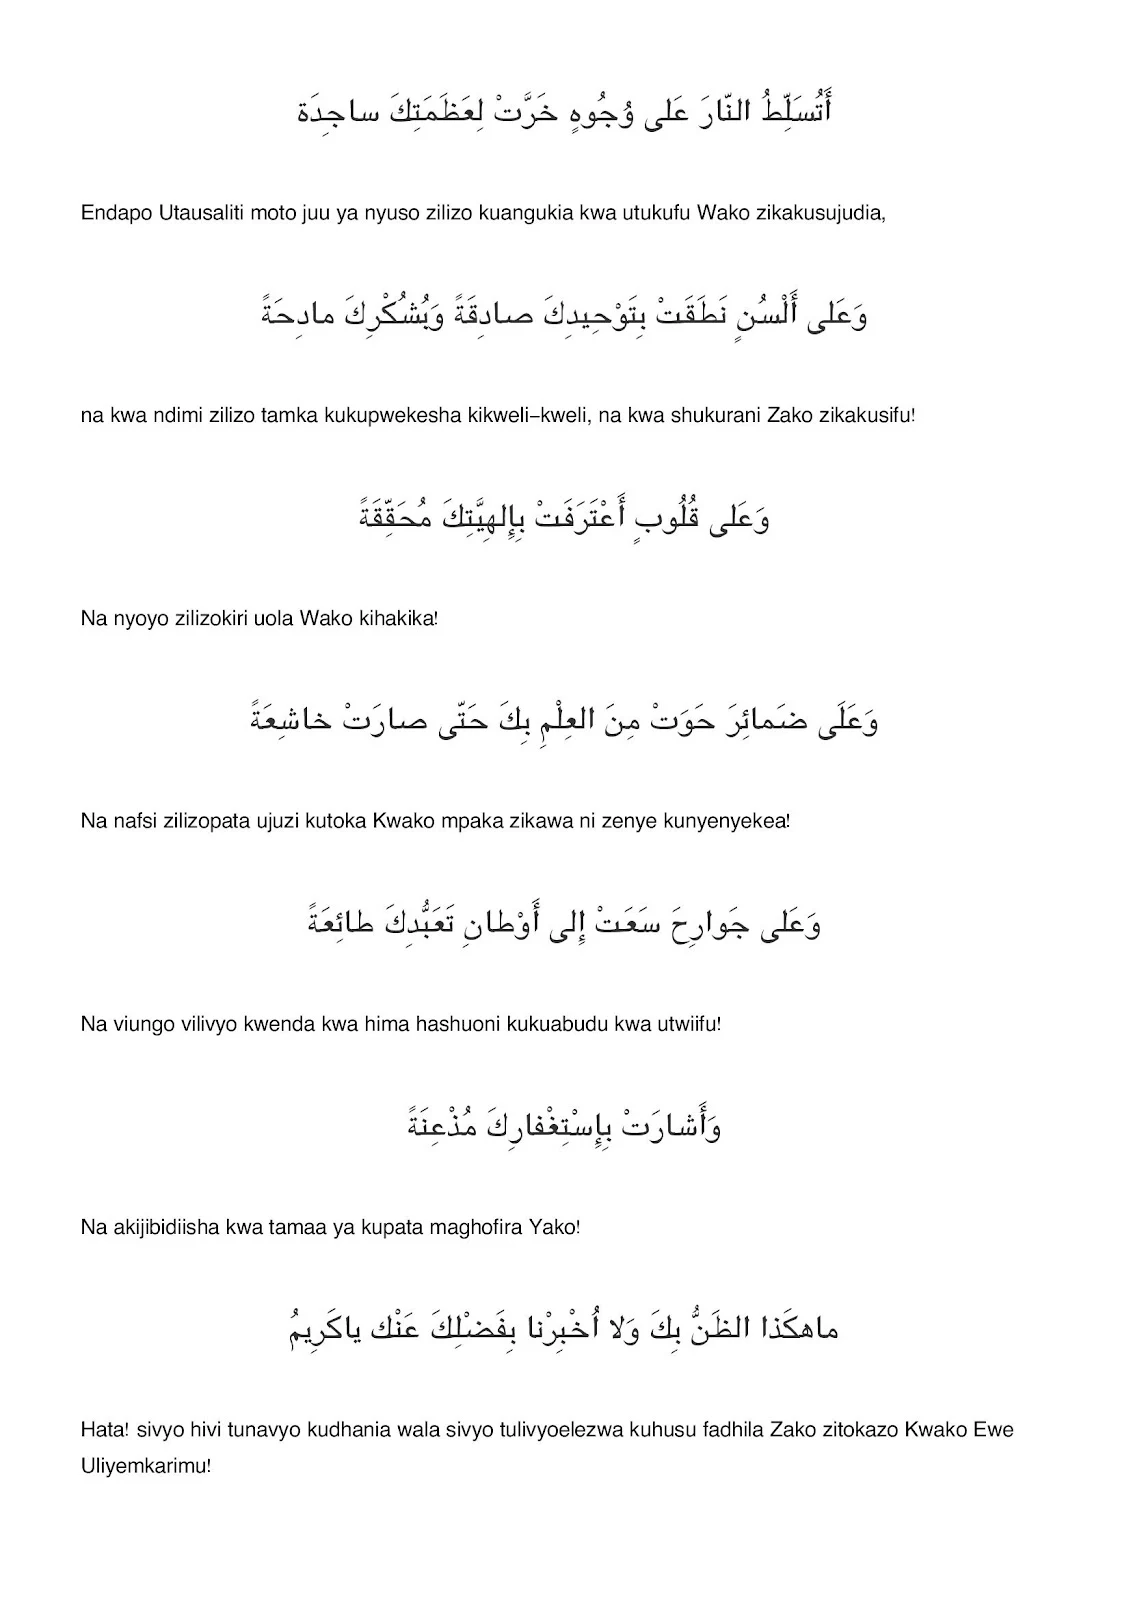 أَتُسَلِّطُ النّارَ عَلى وُجُوهٍ خَرَّتْ لِعَظَمَتِكَ ساجِدَة
Endapo Utausaliti moto juu ya nyuso zilizo kuangukia kwa utukufu Wako zikakusujudia,
وَعَلى أَلْسُنٍ نَطَقَتْ بِتَوْحِيدِكَ صادِقَةً وَبُشُكْرِكَ مادِحَةً
na kwa ndimi zilizo tamka kukupwekesha kikweli–kweli, na kwa shukurani Zako zikakusifu!
وَعَلى قُلُوبٍ أَعْتَرَفَتْ بِإِلهِيَّتِكَ مُحَقِّقَةً
Na nyoyo zilizokiri uola Wako kihakika!
وَعَلَى ضَمائِرَ حَوَتْ مِنَ العِلْمِ بِكَ حَتّى صارَتْ خاشِعَةً
Na nafsi zilizopata ujuzi kutoka Kwako mpaka zikawa ni zenye kunyenyekea!
وَعَلى جَوارِحَ سَعَتْ إِلى أَوْطانِ تَعَبُّدِكَ طائِعَةً
Na viungo vilivyo kwenda kwa hima hashuoni kukuabudu kwa utwiifu!
وَأَشارَتْ بِإِسْتِغْفارِكَ مُذْعِنَةً
Na akijibidiisha kwa tamaa ya kupata maghofira Yako!
ماهكَذا الظَنُّ بِكَ وَلا اُخْبِرْنا بِفَضْلِكَ عَنْك ياكَرِيمُ
Hata! sivyo hivi tunavyo kudhania wala sivyo tulivyoelezwa kuhusu fadhila Zako zitokazo Kwako Ewe
Uliyemkarimu!